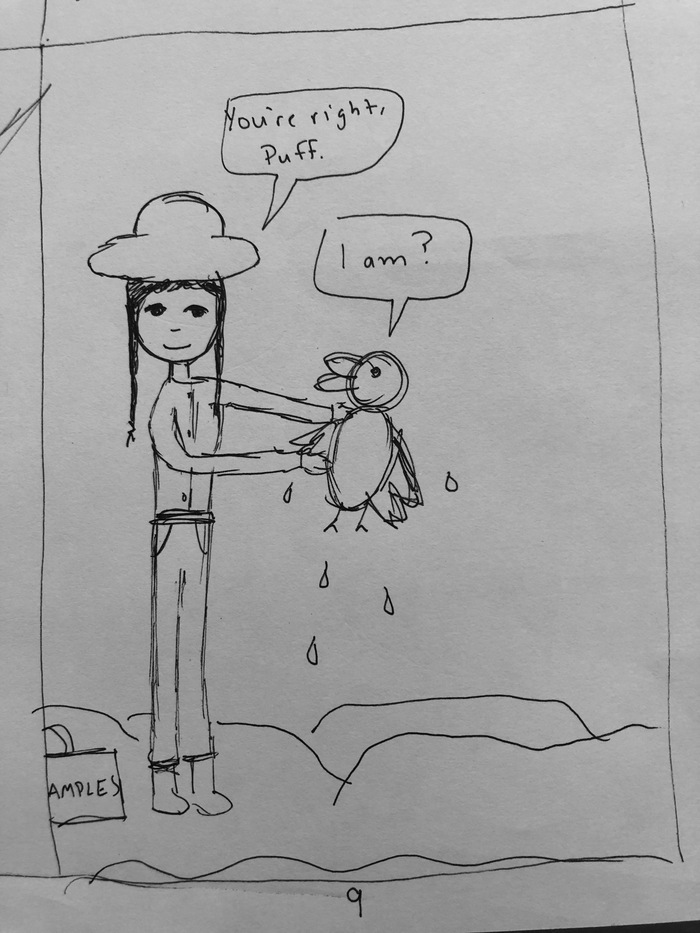 You're right,
Puff.
I am?
AMPLES
9